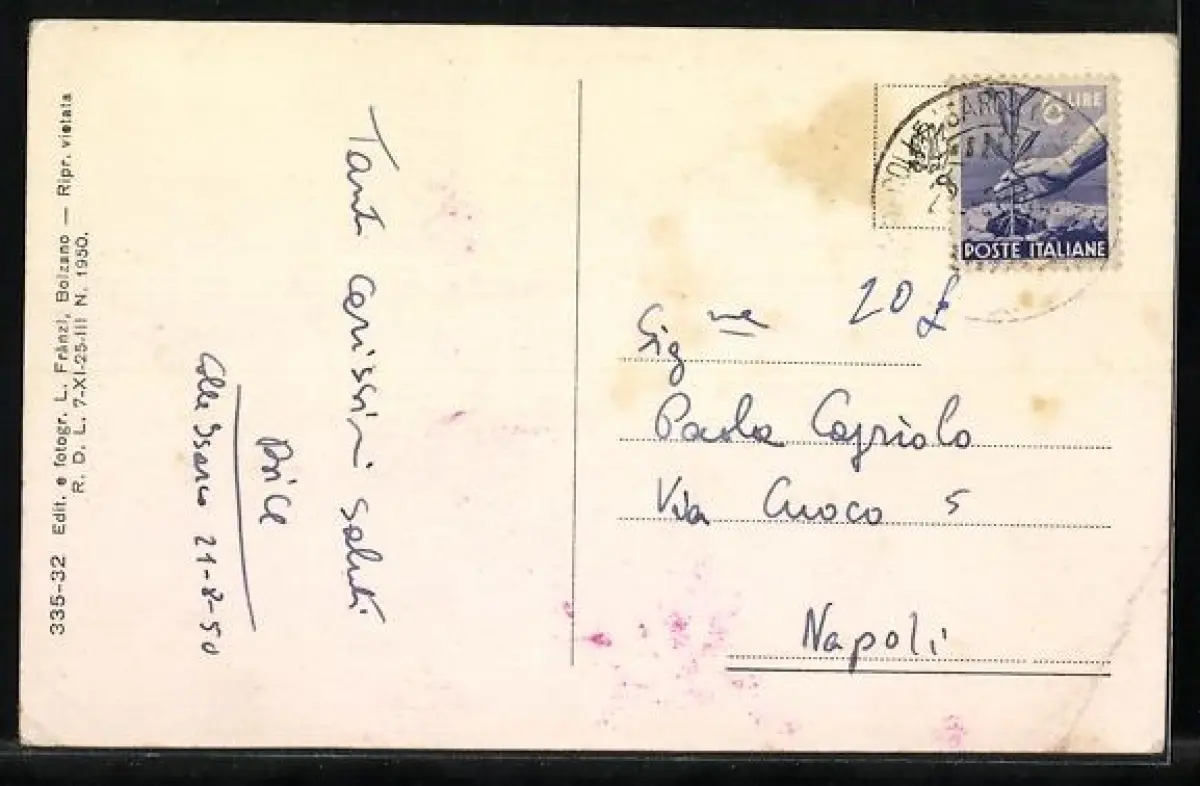 335-32 Edit. e fotogr. L. Fränzl, Bolzano — Ripr. vietata
R. D. L. 7-XI-25-III N. 1950.
Tanti carissimi saluti
Colle Isarco 21-8-50
LIRE
POSTE ITALIANE
20 £
Sig na
Paola Capriolo
Via Cuoco 5
Napoli